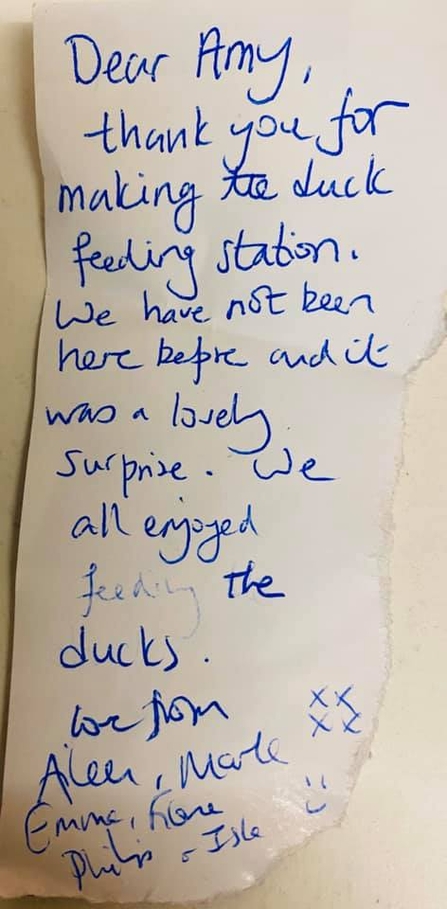 Dear Amy,
thank you for
making the duck
feeding station.
We have not been
here before and it
was a lovely
surprise. We
all enjoyed
feeding the
ducks.
love from xx
xx
Aileen, Mark
Emma,
Philip & Isla